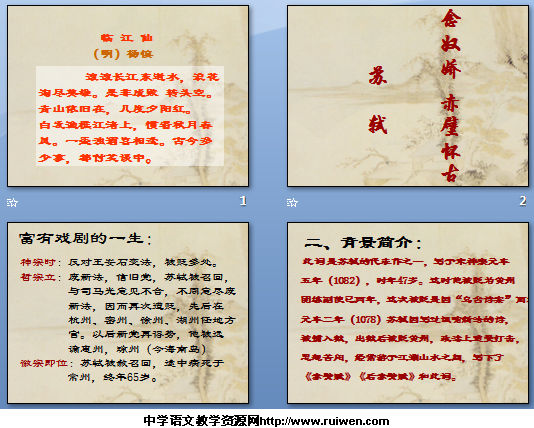 临 江 仙
（明）杨慎
滚滚长江东逝水，浪花
淘尽英雄。是非成败 转头空。
青山依旧在，几度夕阳红。
白发渔樵江渚上，惯看秋月春
风。一壶浊酒喜相逢。古今多
少事，都付笑谈中。
1
念奴娇 赤壁怀古
苏轼
2
富有戏剧的一生：
神宗时：反对王安石变法，被贬多处。
哲宗立：废新法，信旧党，苏轼被召回，
与司马光意见不合，不同意尽废
新法，因而再次遭贬，先后在
杭州、密州、徐州、湖州任地方
官。以后新党再得势，他被远
谪惠州，琼州（今海南岛）
徽宗即位：苏轼被赦召回，途中病死于
常州，终年65岁。
二、背景简介：
此词是苏轼的代表作之一，写于宋神宗元丰
五年（1082），时年47岁。这时他被贬为黄州
团练副使已两年，这次被贬是因“乌台诗案”而
元丰二年（1078）苏轼因写过讽喻新法的诗，
被捕入狱，出狱后被贬黄州，政治上遭受打击，
思想苦闷，经常游于江湖山水之间，写下了
《赤壁赋》《后赤壁赋》和此词。
中学语文教学资源网http://www.ruiwen.com